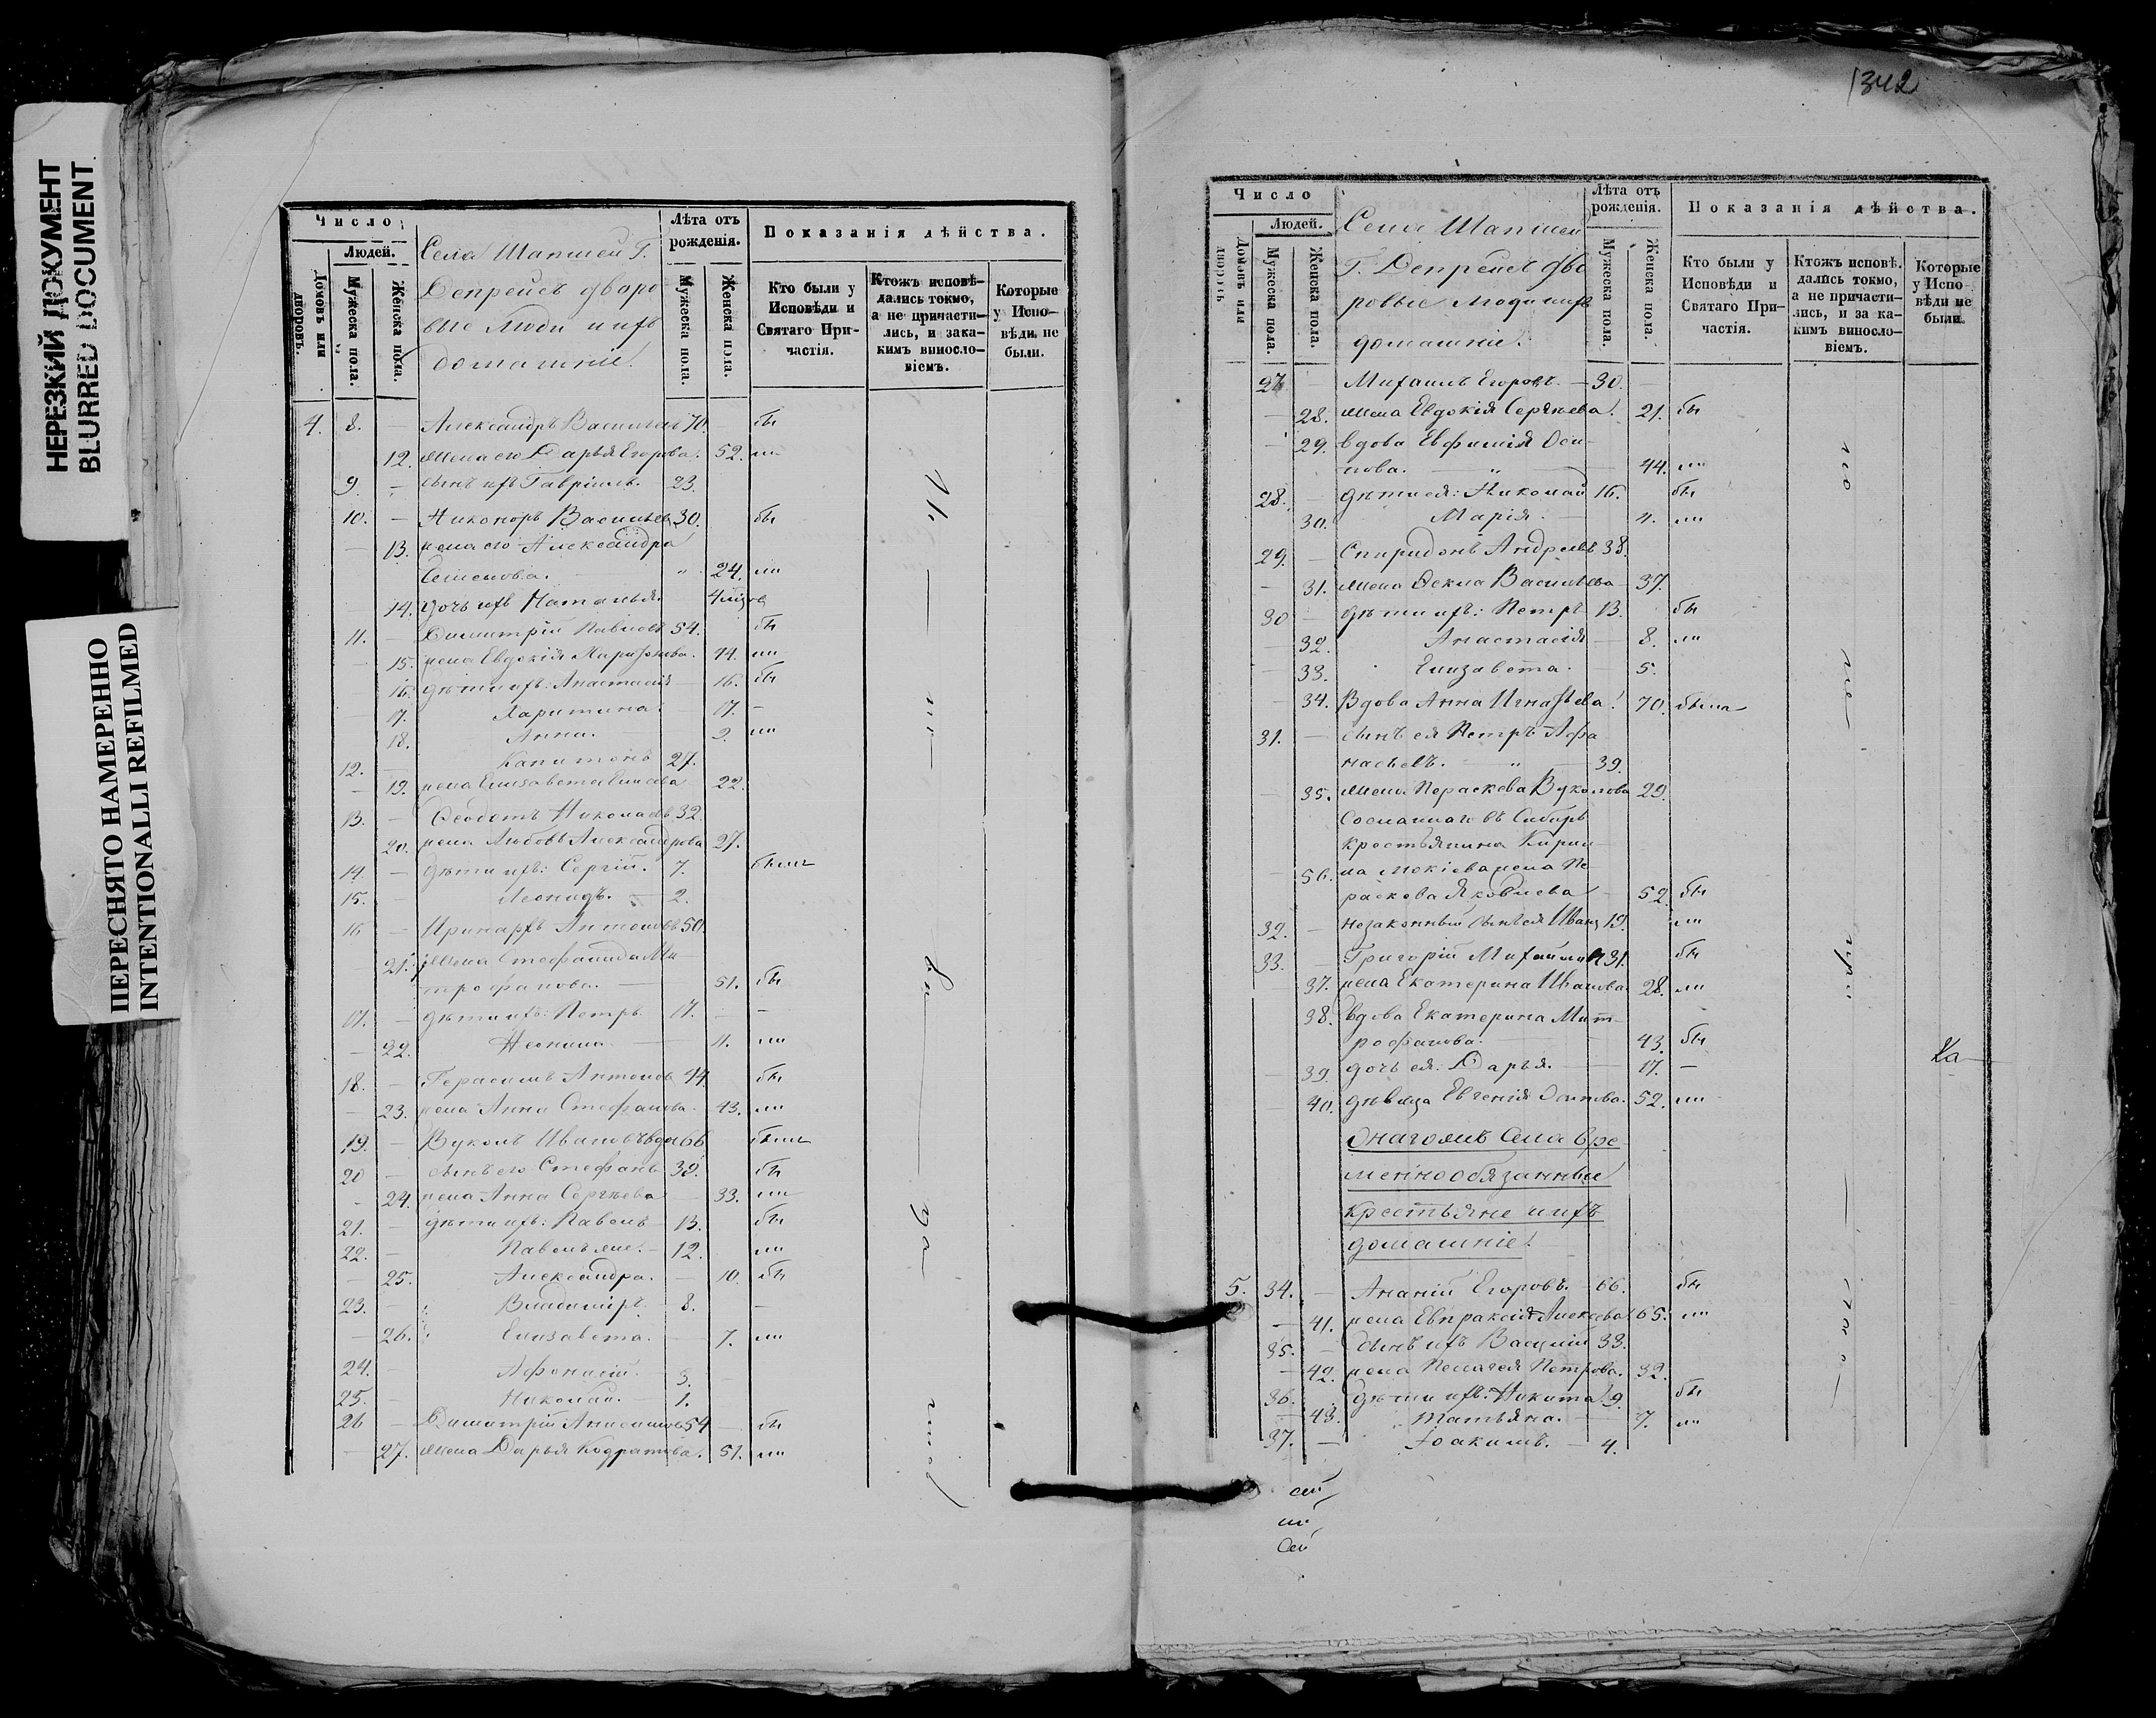 НЕРЕЗКИЙ ДОКУМЕНТ
BLURRED DOCUMENT.
ПЕРЕСНЯТО НАМЕРЕННО
INTENTIONALLI REFILMED
Число
Людей.
Домовъ или дворовъ.
Мужеска пола.
Женска пола.
Села Шапшей Г.
Депрейсъ дворо
вые люди и ихъ
домашніе.
Лѣта отъ рожденія.
Мужеска пола.
Женска пола.
Показанія дѣйства.
Кто были у Исповѣди и Святаго Причастія.
Ктожъ исповѣдались токмо, а не причастились, и за какимъ винословіемъ.
Которые у Исповѣди не были.
4. 8. — Александръ Васильевъ 70. — бы
12. жена его Дарья Егорова. 52. ли
9. — сынъ ихъ Гавріилъ. 23.
10. — Никоноръ Васильевъ 30. бы
— 13. жена его Александра
Семенова. " 24. ли
14. дочь ихъ Наталья.
11. — Димитрій Павловъ 54. бы
— 15. жена Евдокія Харитонова. 44. ли
16. дѣти ихъ: Анастасія — 16. бы
17. Харитина. — 17. —
18. Анна. — 2. ли
12. — Капитонъ 27.
— 19. жена Елизавета 22.
13. — Ѳеодотъ Николаевъ 32.
20. жена Любовь Александрова 27.
14. — дѣти ихъ: Сергій. 7. были
15. — Леонидъ. — 2.
16 — Иринархъ Антоновъ 50.
— 21. жена Стефанида Ми
трофанова. — 51. бы
17. — дѣти ихъ: Петръ. 17. — —
— 22. Неонила. — 11. ли
18. — Герасимъ Антоновъ 44. бы
— 23. жена Анна Стефанова. 43. ли
19. — Вуколъ Ивановъ вдов 66 были
20 — сынъ его Стефанъ 39. бы
— 24. жена Анна Сергѣева — 33. ли
21. — дѣти ихъ: Павелъ — 13. бы
22. — Павелъ же. — 12. ли
— 25. Александра. — 10. бы
23. — Владиміръ — 8. —
— 26. Елизавета. — 7. ли
24. — Афонасій. — 3.
25. — Николай. — 1.
26 — Димитрій Анисимовъ 54 — бы
— 27. жена Дарья Кодратова. 51. ли
1342
Число
Людей.
Домовъ или дворовъ
Мужеска пола.
Женска пола.
Села Шапшей
Г. Депрейсъ дво
ровые люди и ихъ
домашніе.
Лѣта отъ рожденія.
Мужеска пола.
Женска пола.
Показанія дѣйства.
Кто были у Исповѣди и Святаго Причастія.
Ктожъ исповѣдались токмо, а не причастились, и за какимъ винословіемъ.
Которые у Исповѣди не были.
27 — Михаилъ Егоровъ. — 30. —
— 28. жена Евдокія Сергѣева. 21. бы
— 29. вдова Евфимія Оси
пова. — " — 44. ли
28. — дѣти ея: Николай 16. бы
30. Марія. — 11. ли
29. — Спиридонъ Андреевъ 38.
— 31. жена Ѳекла Васильева — 37.
30 — дѣти ихъ: Петръ 13. бы
— 32. Анастасія — 8. ли
— 33. Елизавета. — 5.
— 34. Вдова Анна Игнатьева. 70. была
31. — сынъ ея Петръ Афа
насьевъ. — " — 39.
— 35. жена Параскева Вуколова 29.
Сосланнаго въ Сибирь
крестьянина Кирил
— 56. ла Мокіева жена Па
раскева Яковлева — 52. бы
32. — незаконный сынъ ея Иванъ 19. ли
33. — Григорій Михайловъ 31. бы
— 37. жена Екатерина Иванова. 28. ли
— 38. вдова Екатерина Мит
рофанова. — 43. бы
— 39. дочь ея: Дарья. — 17. —
— 40. дѣвица Евгенія Осипова. 52. ли
Онаго жъ села вре
меннообязанные
крестьяне и ихъ
домашніе.
5. 34. — Ананій Егоровъ. — 66. бы
— 41. жена Евпраксія Алексеева. 65. ли
35. — сынъ ихъ Василій 33.
— 42. жена Пелагея Петрова. 32.
36. дѣти ихъ: Никита 9. бы
— 43. Татьяна. — 7. ли
37. — Іоакимъ. — 4.